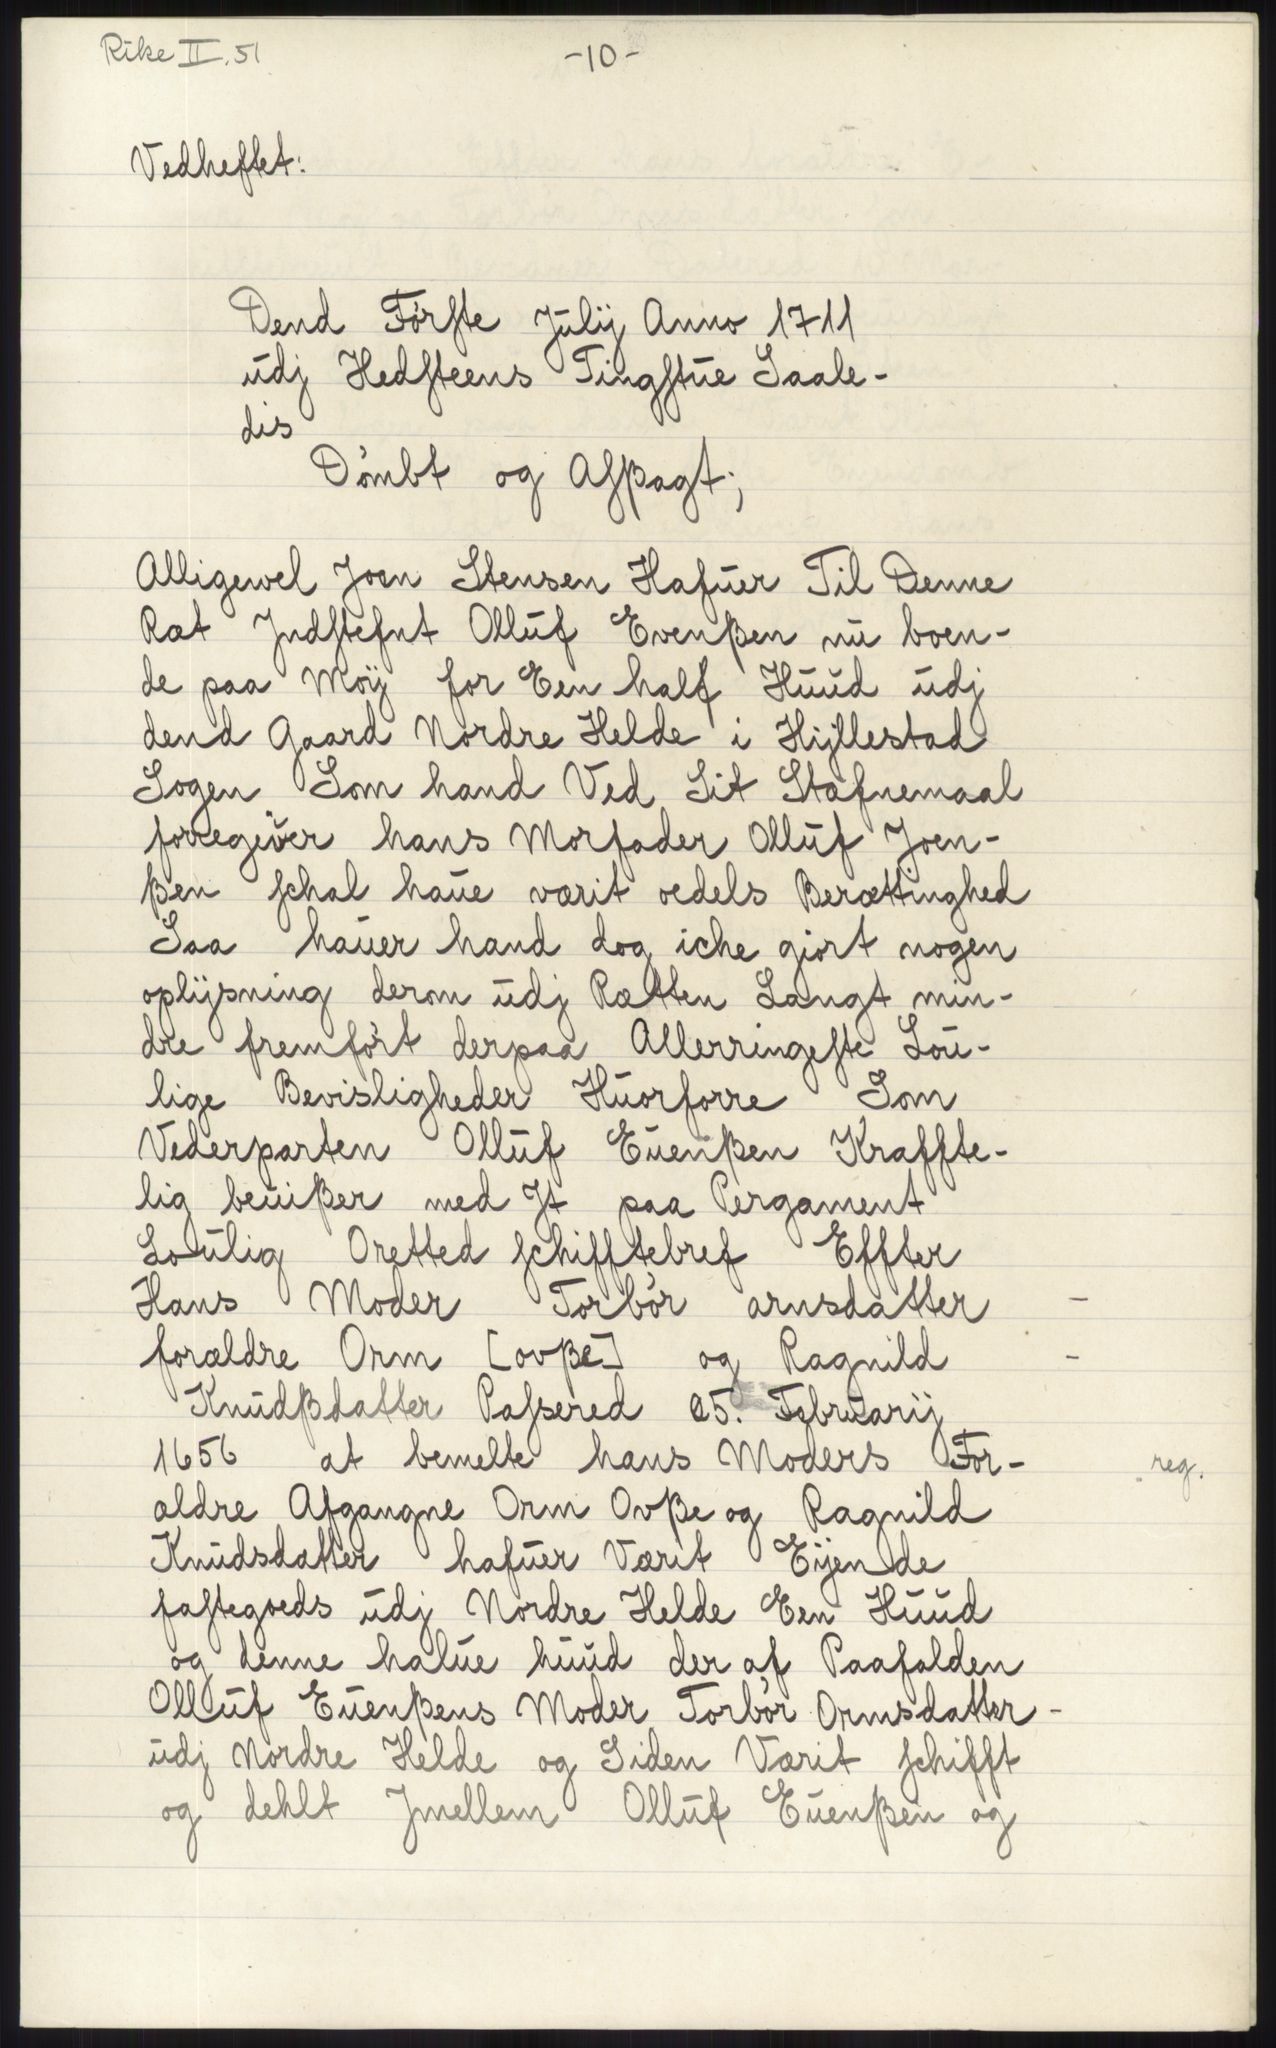 Rike II. 51
-10-
Vedheftet:
Dend Förste Julij Anno 1711
udj Hedsteens Tingstue Saale-
dis
Dömbt og Afßagt;
Alligewel Joen Stensen Hafuer Til Denne
Ræt Jndstefnt Olluf Evenßen nu boen-
de paa Moij for Een half Huud udj
dend Gaard Nordre Helde i Hijllestad
Sogen Som hand Ved Sit Stæfnemaal
forregifver hans Morfader Olluf Joen-
ßen schal haue værit oedels Berættinghed
Saa hauer hand dog iche giort nogen
oplijsning derom udj Rætten Langt min-
dre fremfört derpaa Allerringeste Lou-
lige Bevisligheder Huorforre Som
Vederparten Olluf Euenßen Kraffte-
lig beuißer med Jt paa Pergament
Loulig Oretted schifftebref Effter
Hans Moder Torbör arnsdatter -
forældre Orm [ovße] og Ragnild -
Knudßdatter Passered 25. Februarij
1656 at bemelte hans Moders For- reg.
ældre Afgangne Orm Ovße og Ragnild
Knudsdatter hafuer Værit Eijende
fastegoeds udj Nordre Helde Een Huud
og denne halue huud der af Paafalden
Olluf Euenßens Moder Torbör Ormsdatter -
udj Nordre Helde og Siden Værit schifft
og dehlt Jmellem Olluf Euenßen og